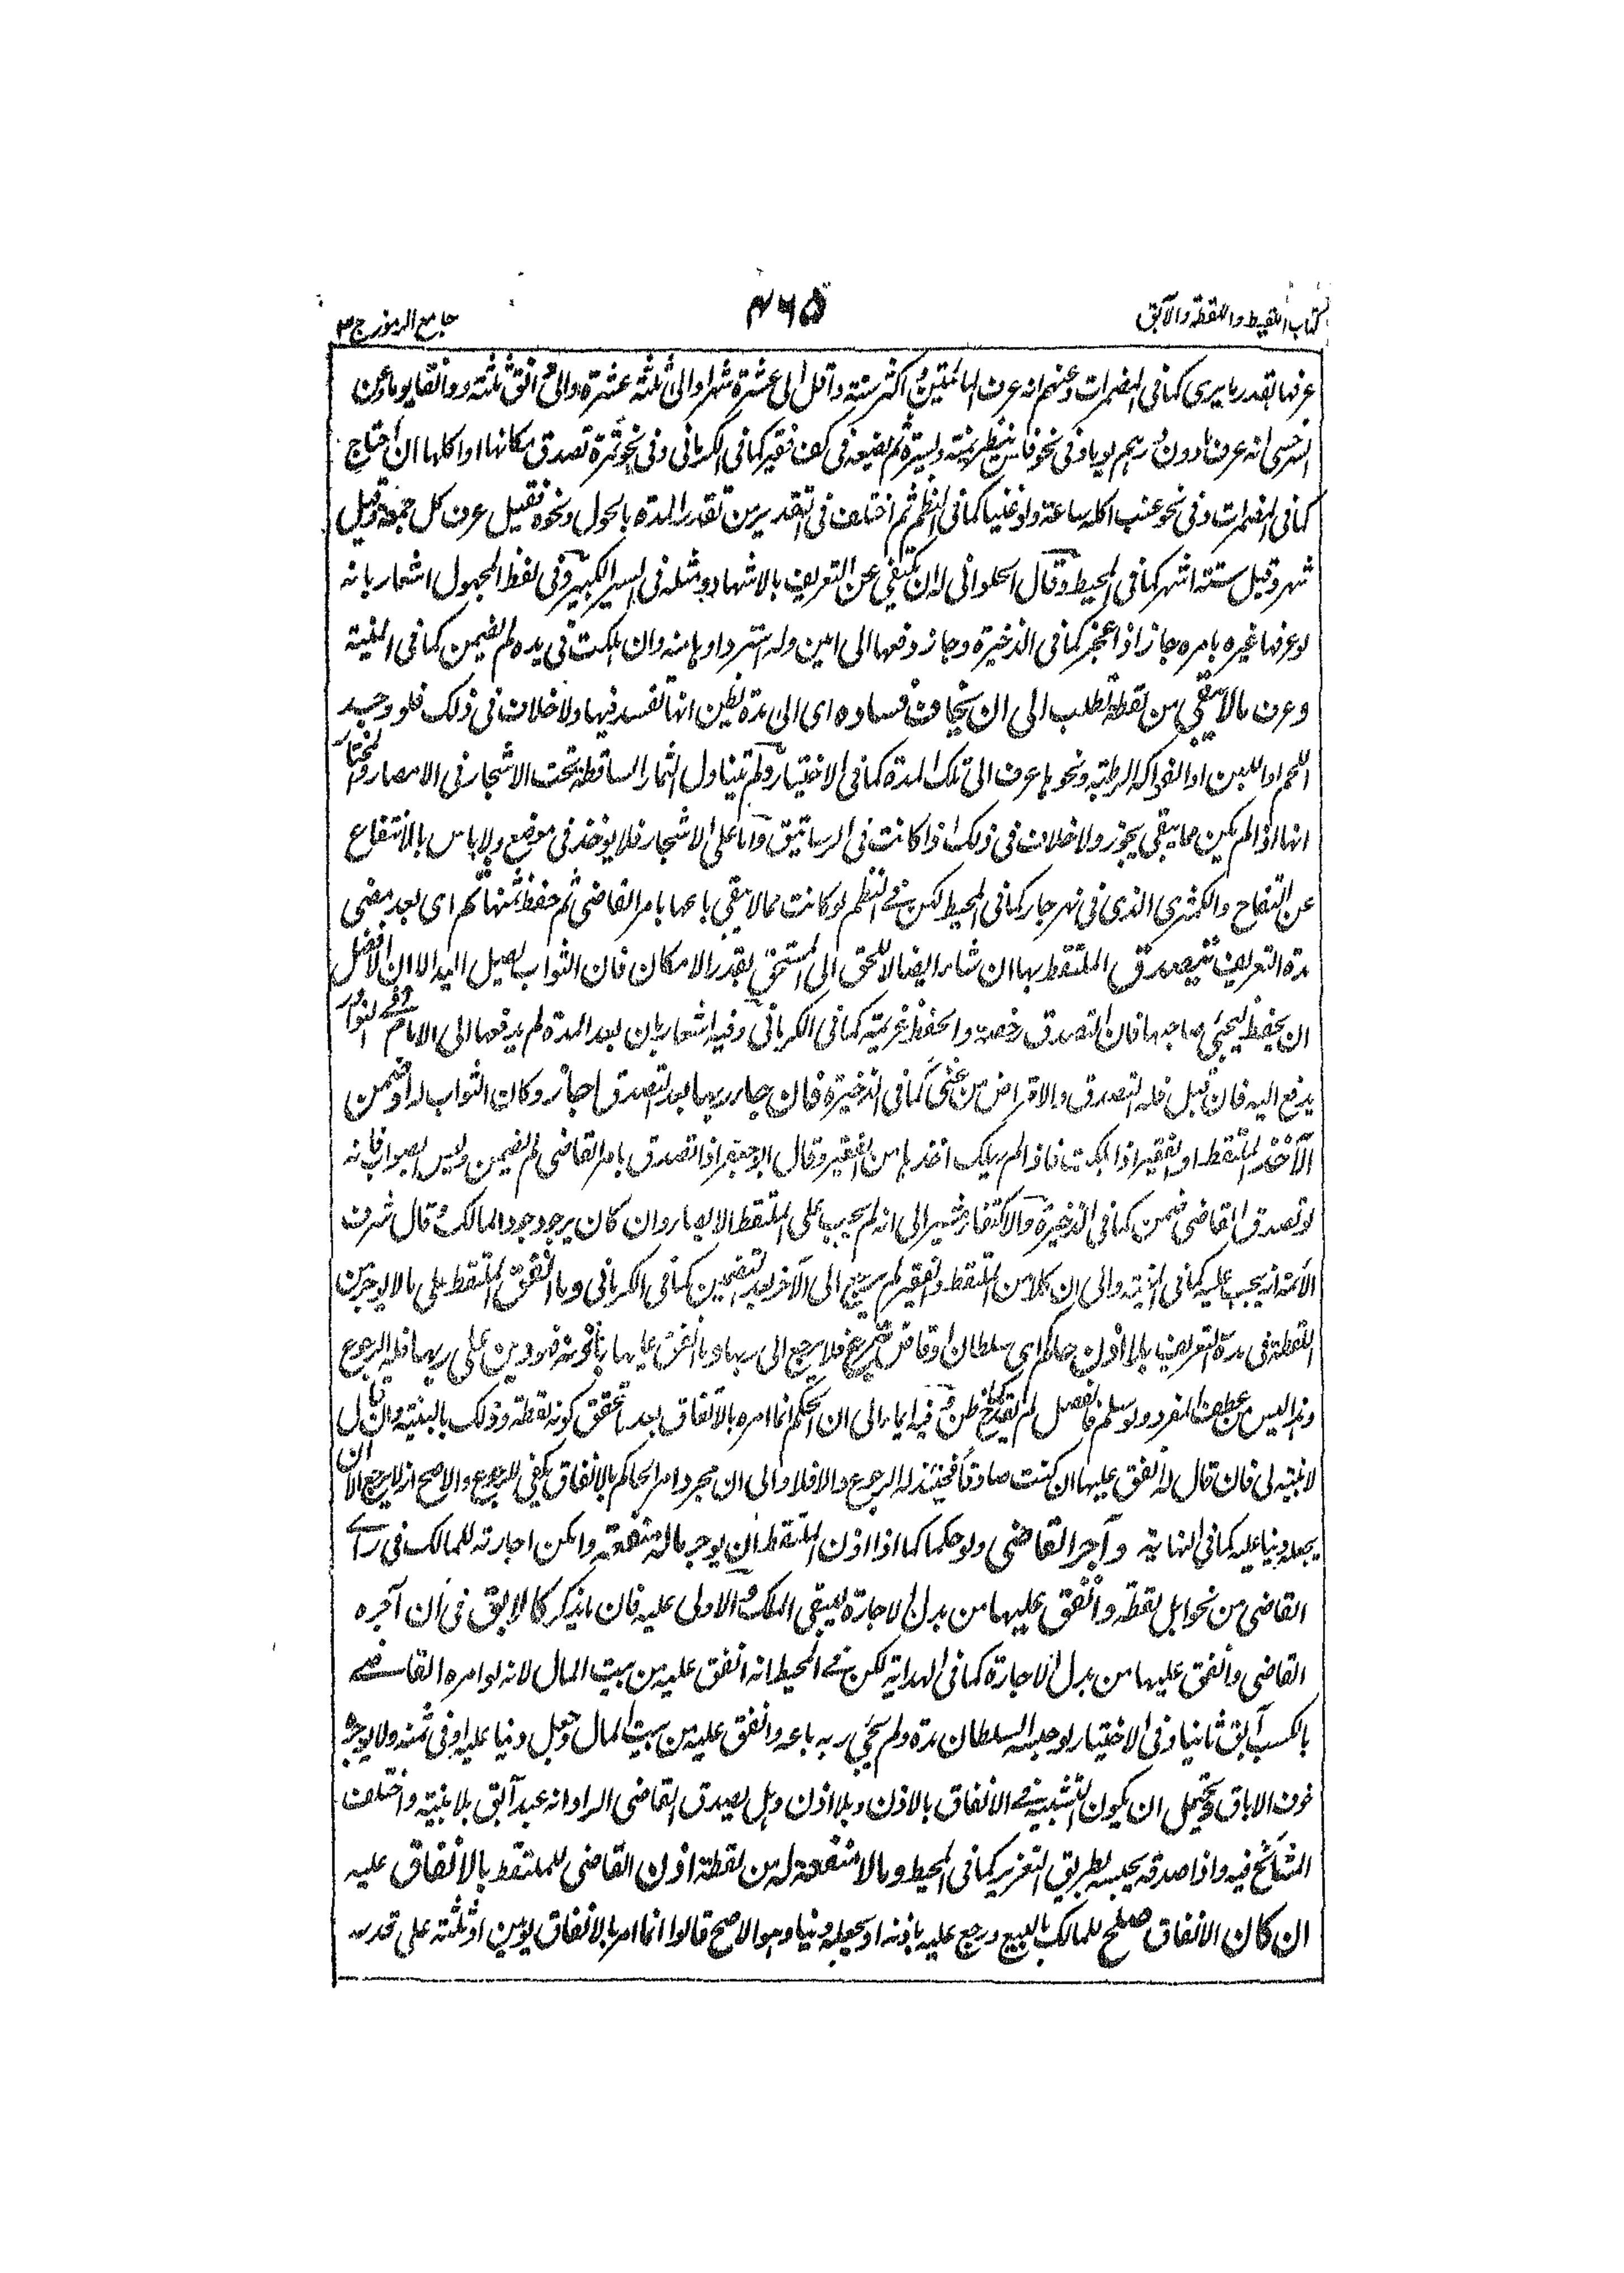 كتاب اللقيط واللقطة والآبق
۴۶۵
جامع الرموز ج ۳
عرفها بقدر ما يرى كما فى المضمرات وعنهم انه عرف المائتين اكثر سنة واقل الى عشرة شهرا والى ثلثة عشرة والى ثلثة ودانقا يوما وعن
السرخسى انه عرف ما دون درهم يوما وفى نحو فلس ينظر يمنة ويسرة ثم يضعه فى كف فقير كما فى الكرمانى وفى نحو تمرة تصدق مكانها او اكلها ان احتاج
كما فى المضمرات وفى نحو عنب اكله ساعة ولو غنيا كما فى النظم ثم اختلف فى التقدير من تقدر المدة بالحول ونحوه فقيل عرف كل جمعة وقيل
شهر وقيل ستة اشهر كما فى المحيط وقال الحلوانى له ان يكتفى عن التعريف بالاشهاد ومثله فى السير الكبير وفى لفظ المجهول اشعار بانه
لو عرفها غيره بامره جاز اذا عجز كما فى الذخيرة وجاز دفعها الى امين وله استردادها منه وان هلكت فى يده لم يضمن كما فى المنية
وعرف مالا يبقى من لقطة تطلب الى ان يخاف فساده اى الى مدة يظن انها تفسد فيها ولا خلاف فى ذلك فلو وجد
اللحم او اللبن او الفواكه الرطبة ونحوها عرف الى تلك المدة كما فى الاختيار ولم يتناول الثمار الساقطة تحت الاشجار فى الامصار والمختار
انها اذا لم يكن مما يبقى يجوز ولا خلاف فى ذلك اذا كانت فى الرساتيق واما على الاشجار فلا يؤخذ فى موضع ولا باس بالانتفاع
عن التفاح والكمثرى الذى فى نهر جار كما فى المحيط لكن فى النظم لو كانت مما لا يبقى باعها بامر القاضى ثم حفظ ثمنها ثم اى بعد مضى
مدة التعريف يتصدق الملتقط بها ان شاء ايصالا للحق الى المستحق بقدر الامكان فان الثواب يصل اليه الا ان الافضل
ان يحفظ ليجئ صاحبها فان التصدق رخصة والحفظ عزيمة كما فى الكرمانى وفيه اشعار بان بعد المدة لم يدفعها الى الامام وفى النوادر
يدفع اليه فان قبل فله التصدق والاقراض من غنى كما فى الذخيرة فان جاء ربها بعد التصدق اجاز وكان الثواب له او ضمن
الآخذ الملتقط او الفقير اذا هلكت فاذا لم يهلك اخذها من الفقير وقال ابو جعفر اذا تصدق بامر القاضى لم يضمن وليس بصواب فانه
لو تصدق القاضى ضمن كما فى الذخيرة والاكتفاء مشير الى انه لم يجب على الملتقط الايصاء وان كان يرجو وجود المالك وقال شرف
الائمة انه يجب عليه كما فى المنية والى ان كلا من الملتقط والفقير لم يرجع الى الآخر بعد التضمين كما فى الكرمانى وما انفق الملتقط على مالا يوجر من
اللقطة فى مدة التعريف بلا اذن حاكم اى سلطان او قاض تبرع فلا يرجع الى ربها وما انفق عليها باذنه فهو دين على ربها فله الرجوع
وهذا ليس من عطف المفرد ولو سلم فالفصل لم يقدح فيه ايماء الى ان الحكم انما امره بالانفاق بعد تحقق كونه لقطة وذلك بالبينة وان قال
لا بينة لى فان قال له انفق عليها ان كنت صادقا فحينئذ له الرجوع والا فلا والى ان مجرد امر الحاكم بالانفاق يكفى للرجوع والاصح انه لا يرجع الا ان
يجعله دينا عليه كما فى النهاية وآجر القاضى ولو حكما كما اذا اذن الملتقط ان يوجر ماله منفعة وامكن اجارته للمالك فى رأے
القاضى من نحو ابل لقطة وانفق عليها من بدل الاجارة ليبقى الملك والاولى عليه فان ما يذكر كالآبق فى ان آجره
القاضى وانفق عليها من بدل الاجارة كما فى الهداية لكن فى المحيط انه انفق عليه من بيت المال لانه لو امره القاضے
بالكسب ابق ثانيا وفى الاختيار لو حبسه السلطان مدة ولم يجئ ربه باعه وانفق عليه من بيت المال وجعل دينا عليه او فى ثمنه ولا يوجره
خوف الاباق ويحتمل ان يكون التشبيه فے الانفاق بالاذن وبلا اذن وهل يصدق القاضى الراد انه عبد آبق بلا بينة واختلف
المشائخ فيه واذا صدقه يحبسه بطريق التعزير كما فى المحيط ومالا منفعة له من لقطة اذن القاضى للملتقط بالانفاق عليه
ان كان الانفاق صلح للمالك بالبيع ورجع عليه باذنه او يجعله دينا وهو الاصح قالوا انما امر بالانفاق يومين او ثلثة على قدر